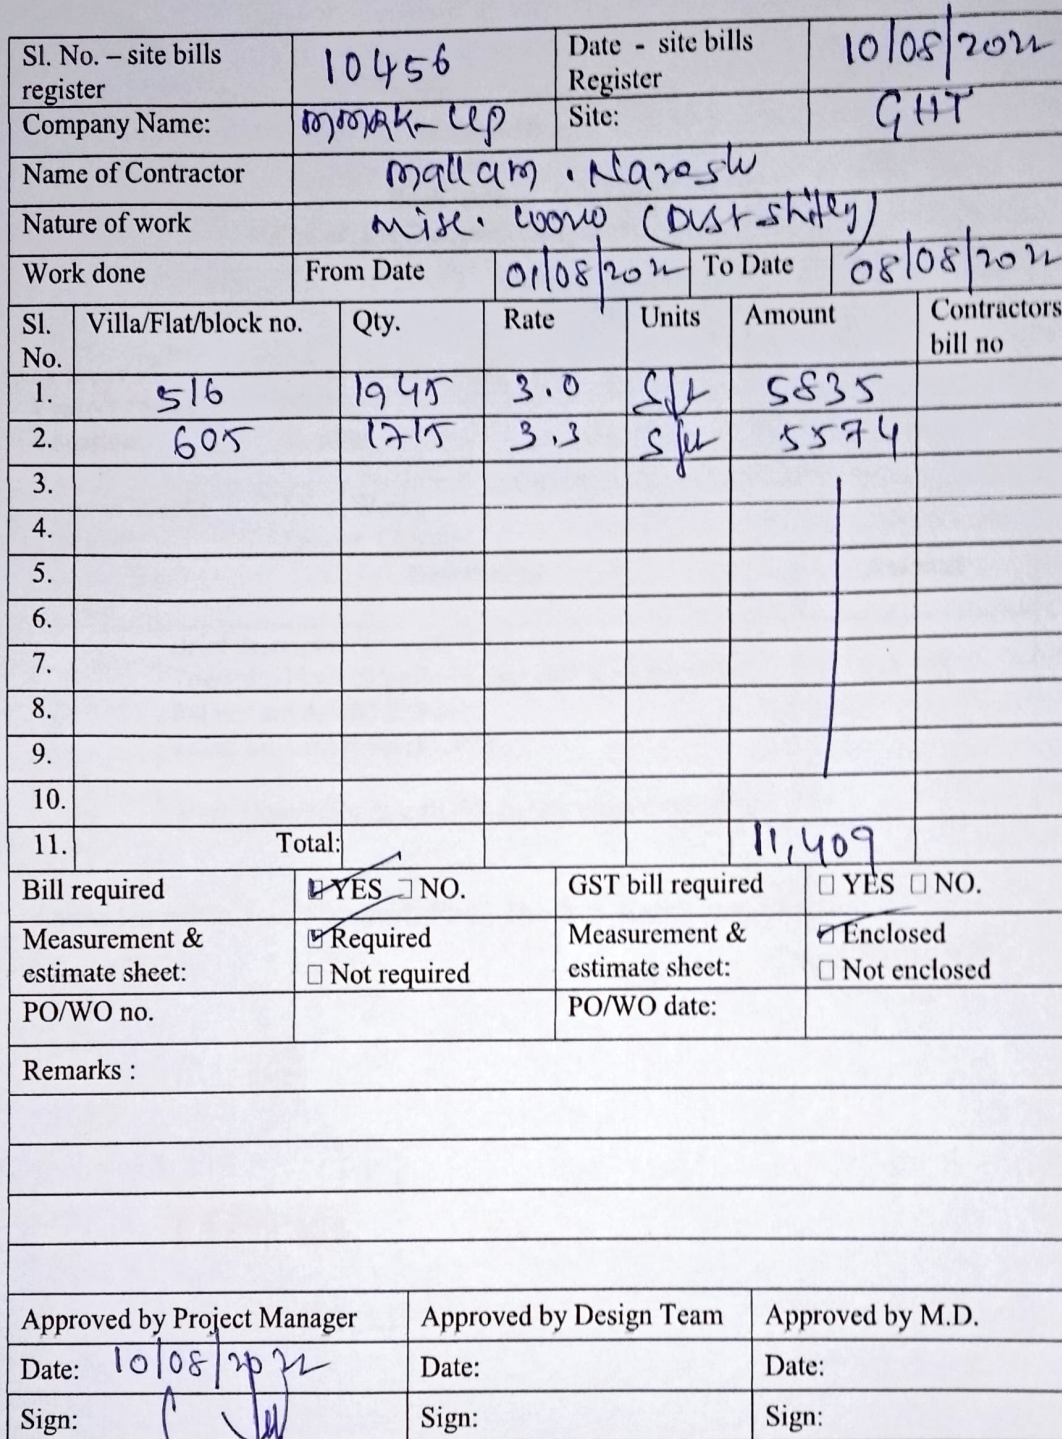 Sl. No. – site bills register 10456 Date - site bills Register 10/08/2022
Company Name: MMRK-LLP Site: GHT
Name of Contractor Mallam . Naresh
Nature of work Misc. work (Dust shifting)
Work done From Date 01/08/2022 To Date 08/08/2022
Sl. No. Villa/Flat/block no. Qty. Rate Units Amount Contractors bill no
1. 516 1945 3.0 Sft 5835
2. 605 1715 3.3 Sft 5574
3.
4.
5.
6.
7.
8.
9.
10.
11. Total: 11,409
Bill required YES NO. GST bill required YES NO.
Measurement & estimate sheet: Required Measurement & estimate sheet: Enclosed
Not required Not enclosed
PO/WO no. PO/WO date:
Remarks :
Approved by Project Manager Approved by Design Team Approved by M.D.
Date: 10/08/2022 Date: Date:
Sign: Sign: Sign: